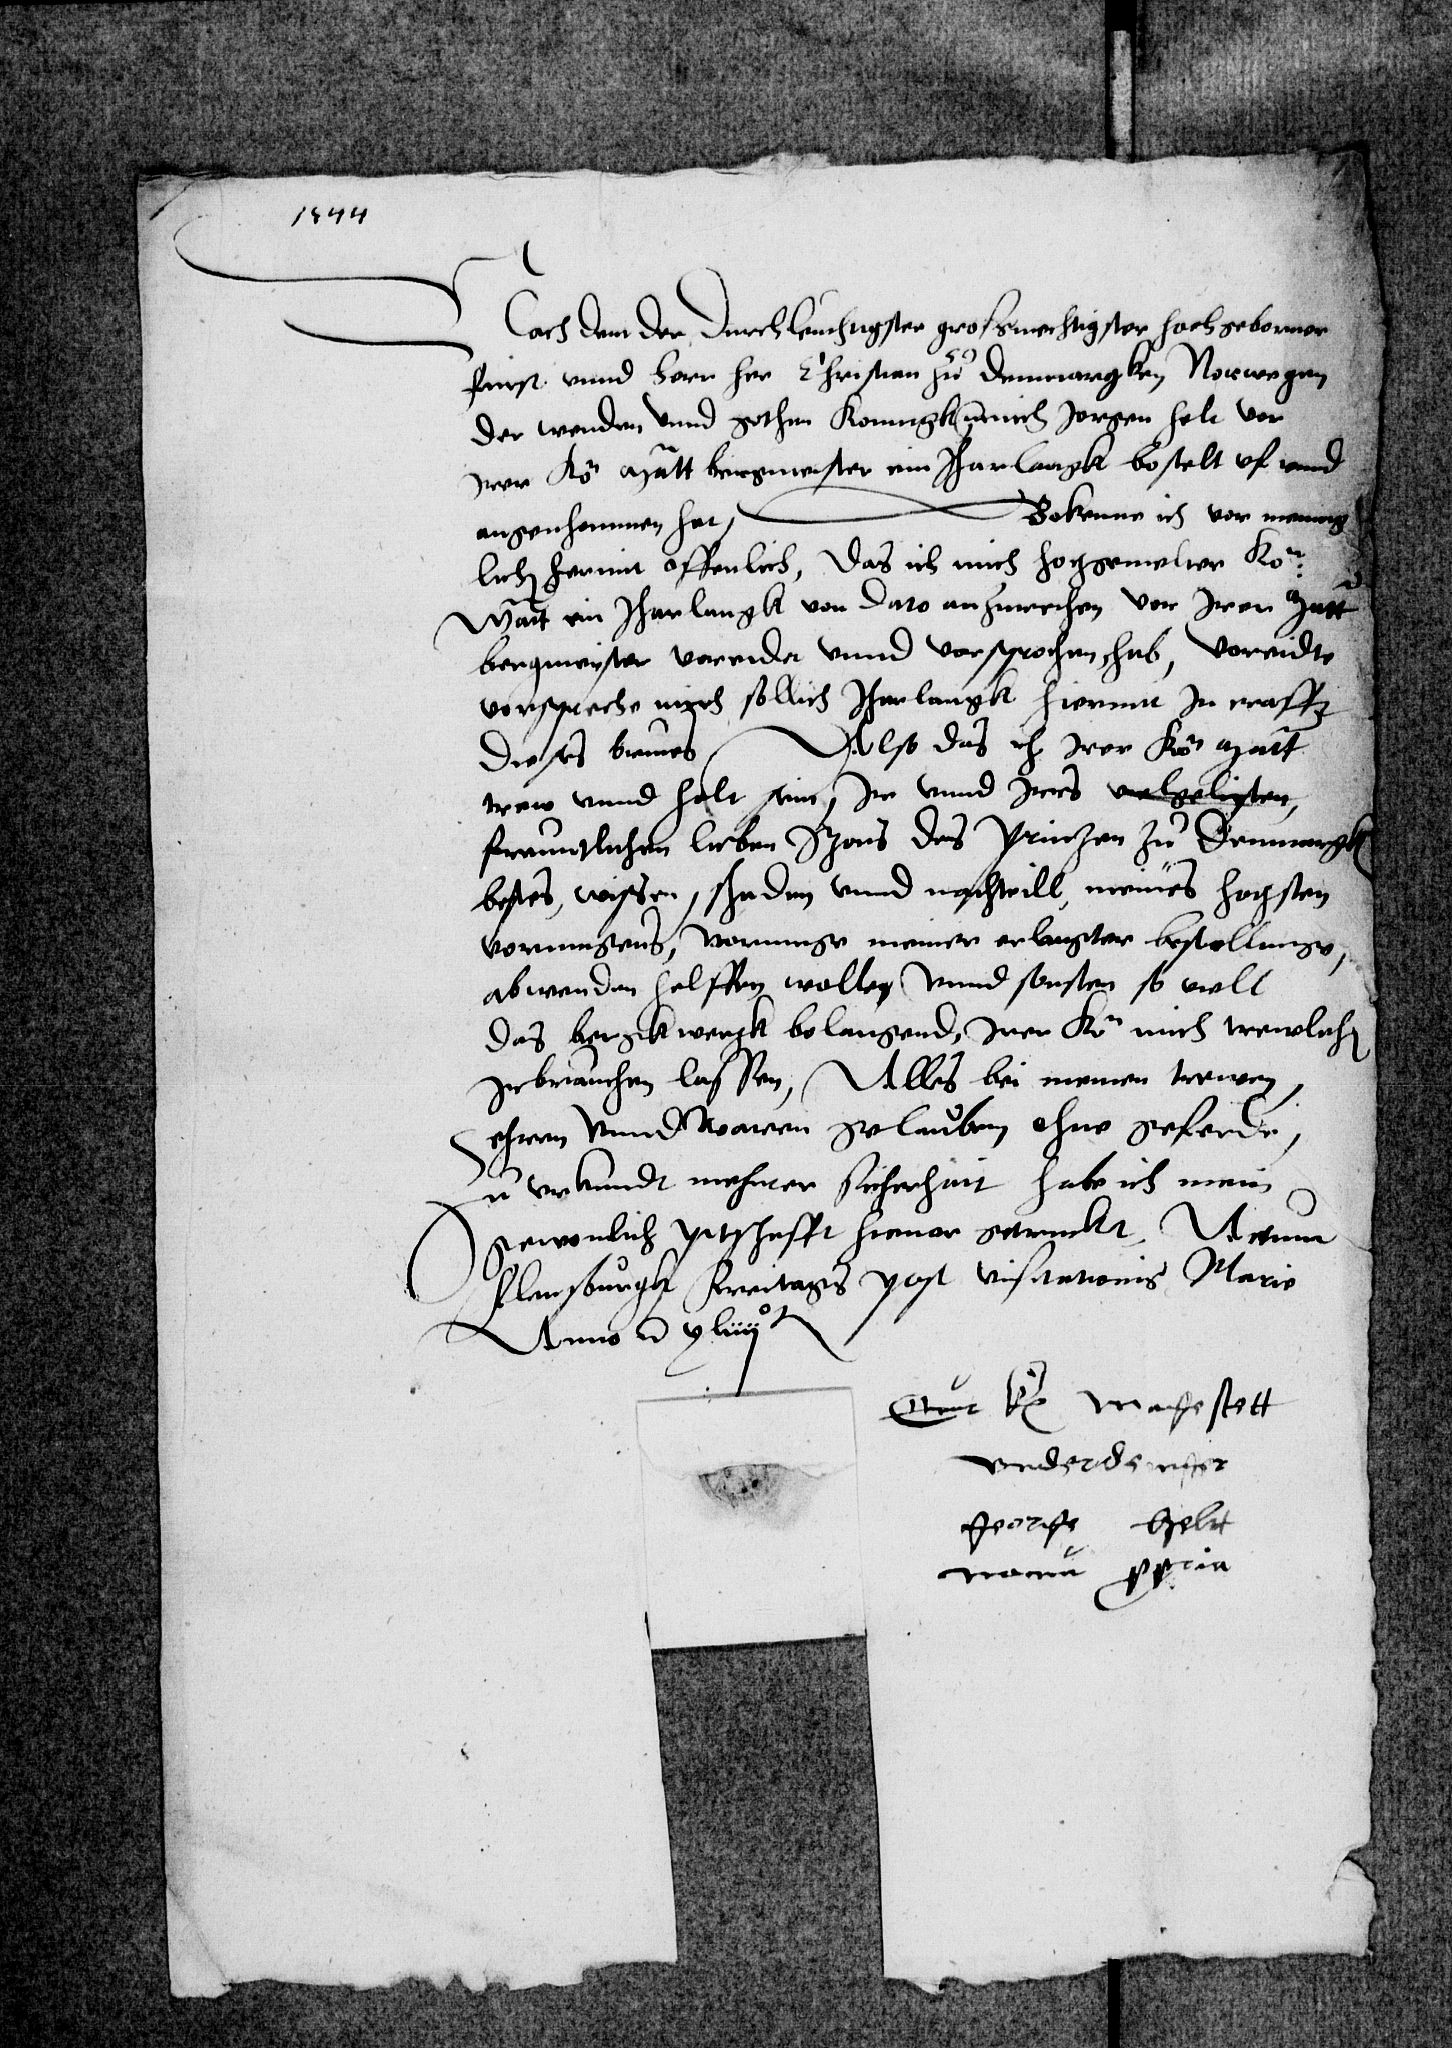 1544
Nach dem der Durchleuchtigster großmechtigster hochgeborner
furst vnnd herr her Christian zu Denmargken, Norwegen
der wenden vnnd gothen Konungk mich Jorgen helt vor
Irer Ko Matt bergmeister ein Jharlangk bestelt vf vnnd
angenhommen hat, Bekenne ich vor mennig
lich hermit offenlich, Das ich mich hochgemelter Kor
Matt ein Jharlangk von dato anzurechen vor Irer Matt
bergmeyster voreidet vnnd vorsprochen hab, Voreidte
vorspreche mich sollich Jharlangk hiermit In crafft
dieses brieues Also das ich Irer Kon Matt
trew vnnd holt sein, Ir vnnd Ires vielgelipten,
freuntlichen lieben Szons des Printzen zu Denmargk
bestes, wissen, schaden vnnd nachteill, meines hogsten
vormugens, vormuge meiner erlangter bestellunge,
abwenden helffen wolle, Vnnd sonsten so viell
das bergkwergk belangend, Irer Kon mich trewlich
gebrauchen lassen, Alles bei meinen trewen,
ehren vnnd waren gelauben ohne geferde,
Zu vrkundt mehrer sicherheit habe ich mein
gewonlich pitschafft hieuor getruckt, Actum
Flensburgk Freitags post visitationis Marie
Anno xliiijo
Ewr ko Magestett
vnderdeniger
george helt
manu ppria